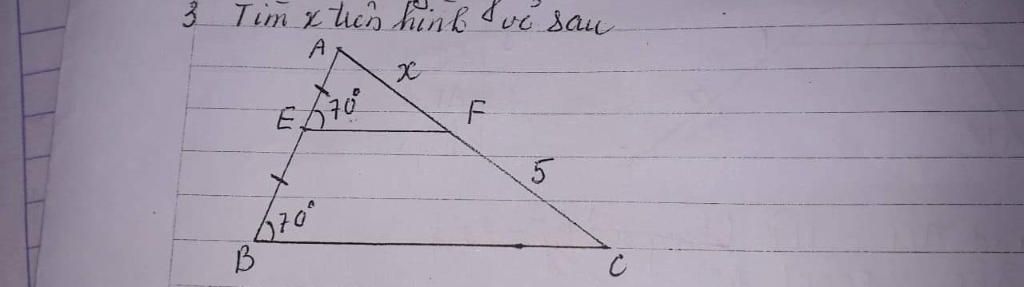 3 Tìm x trên hình vẽ sau
A
x
E 70° F
5
70°
B C